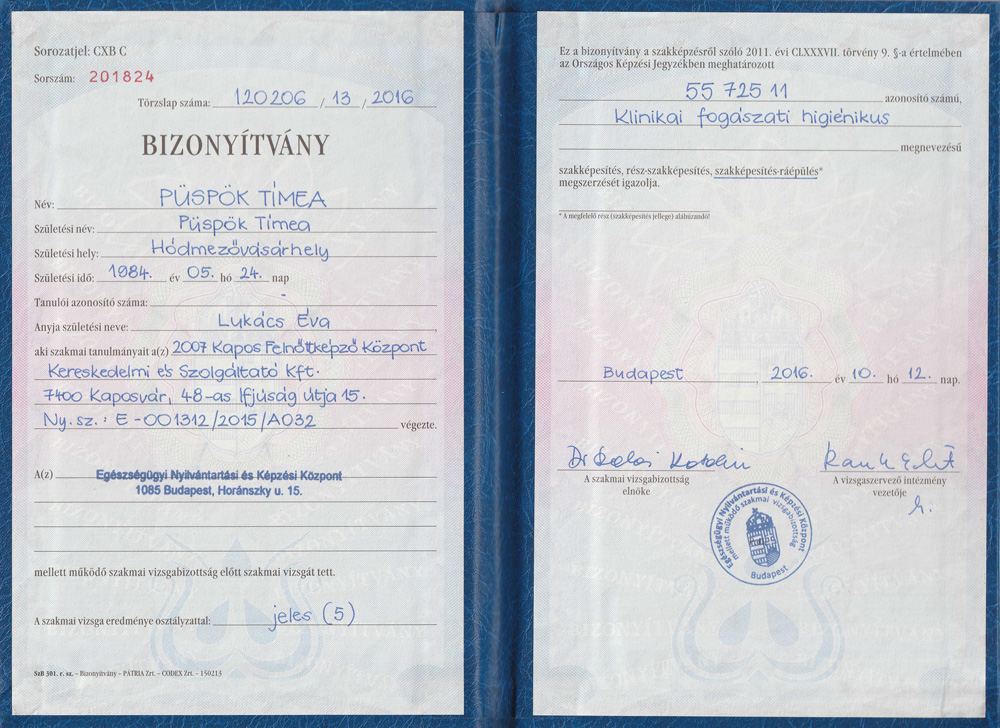 Sorozatjel: CXB C
Sorszám: 201824
Törzslap száma: 120206 / 13 / 2016
BIZONYÍTVÁNY
Név: PÜSPÖK TÍMEA
Születési név: Püspök Tímea
Születési hely: Hódmezővásárhely
Születési idő: 1984. év 05. hó 24. nap
Tanulói azonosító száma: -
Anyja születési neve: Lukács Éva,
aki szakmai tanulmányait a(z) 2007 Kapos Felnőttképző Központ
Kereskedelmi és Szolgáltató Kft.
7400 Kaposvár, 48-as Ifjúság útja 15.
Ny. sz.: E-001312/2015/A032 végezte.
A(z) Egészségügyi Nyilvántartási és Képzési Központ
1085 Budapest, Horánszky u. 15.
mellett működő szakmai vizsgabizottság előtt szakmai vizsgát tett.
A szakmai vizsga eredménye osztályzattal: jeles (5)
SzB 301. r. sz. – Bizonyítvány – PÁTRIA Zrt. – CODEX Zrt. – 150213
Ez a bizonyítvány a szakképzésről szóló 2011. évi CLXXXVII. törvény 9. §-a értelmében
az Országos Képzési Jegyzékben meghatározott
55 725 11 azonosító számú,
Klinikai fogászati higiénikus
megnevezésű
szakképesítés, rész-szakképesítés, szakképesítés-ráépülés*
megszerzését igazolja.
* A megfelelő rész (szakképesítés jellege) aláhúzandó!
Budapest, 2016. év 10. hó 12. nap.
A szakmai vizsgabizottság
elnöke
A vizsgaszervező intézmény
vezetője
Egészségügyi Nyilvántartási és Képzési Központ
mellett működő szakmai vizsgabizottság
Budapest